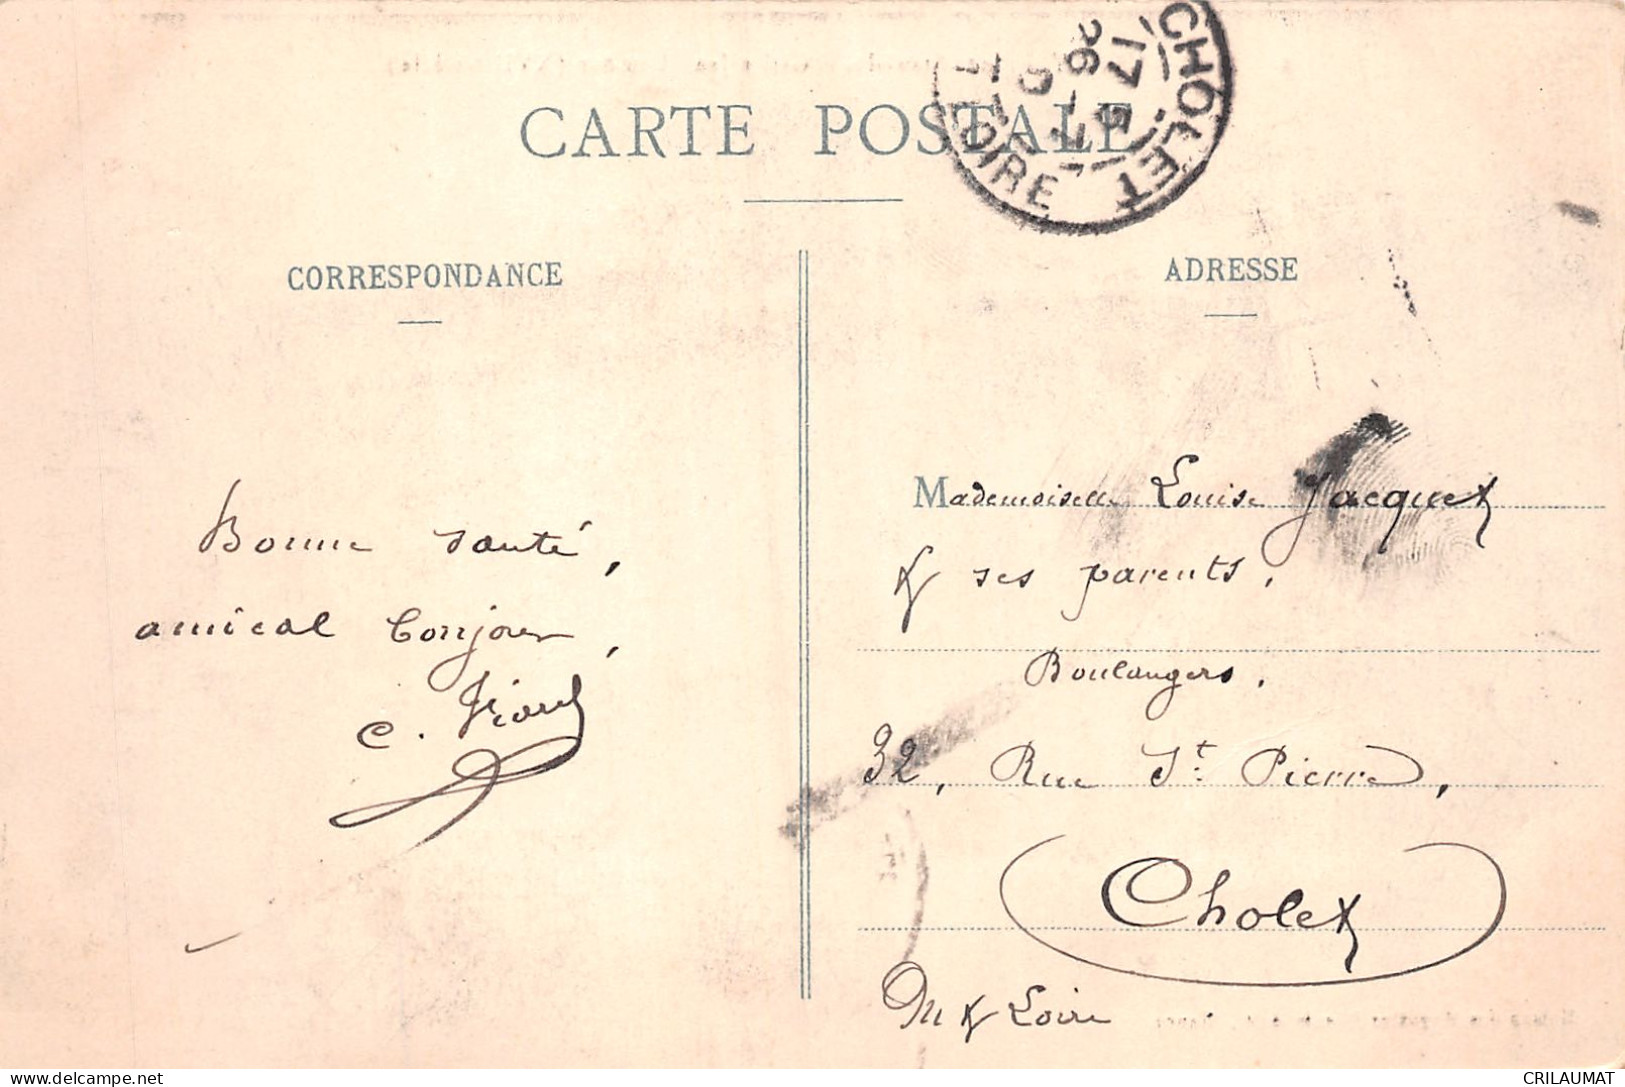 CARTE POSTALE
CHOLET
17 5
26
LOIRE
CORRESPONDANCE
ADRESSE
Bonne santé,
amical bonjour,
C.
Mademoiselle Louise Jacquet
& ses parents.
Boulangers.
32, Rue St. Pierre,
Cholet
M & Loire
CRILAUMAT